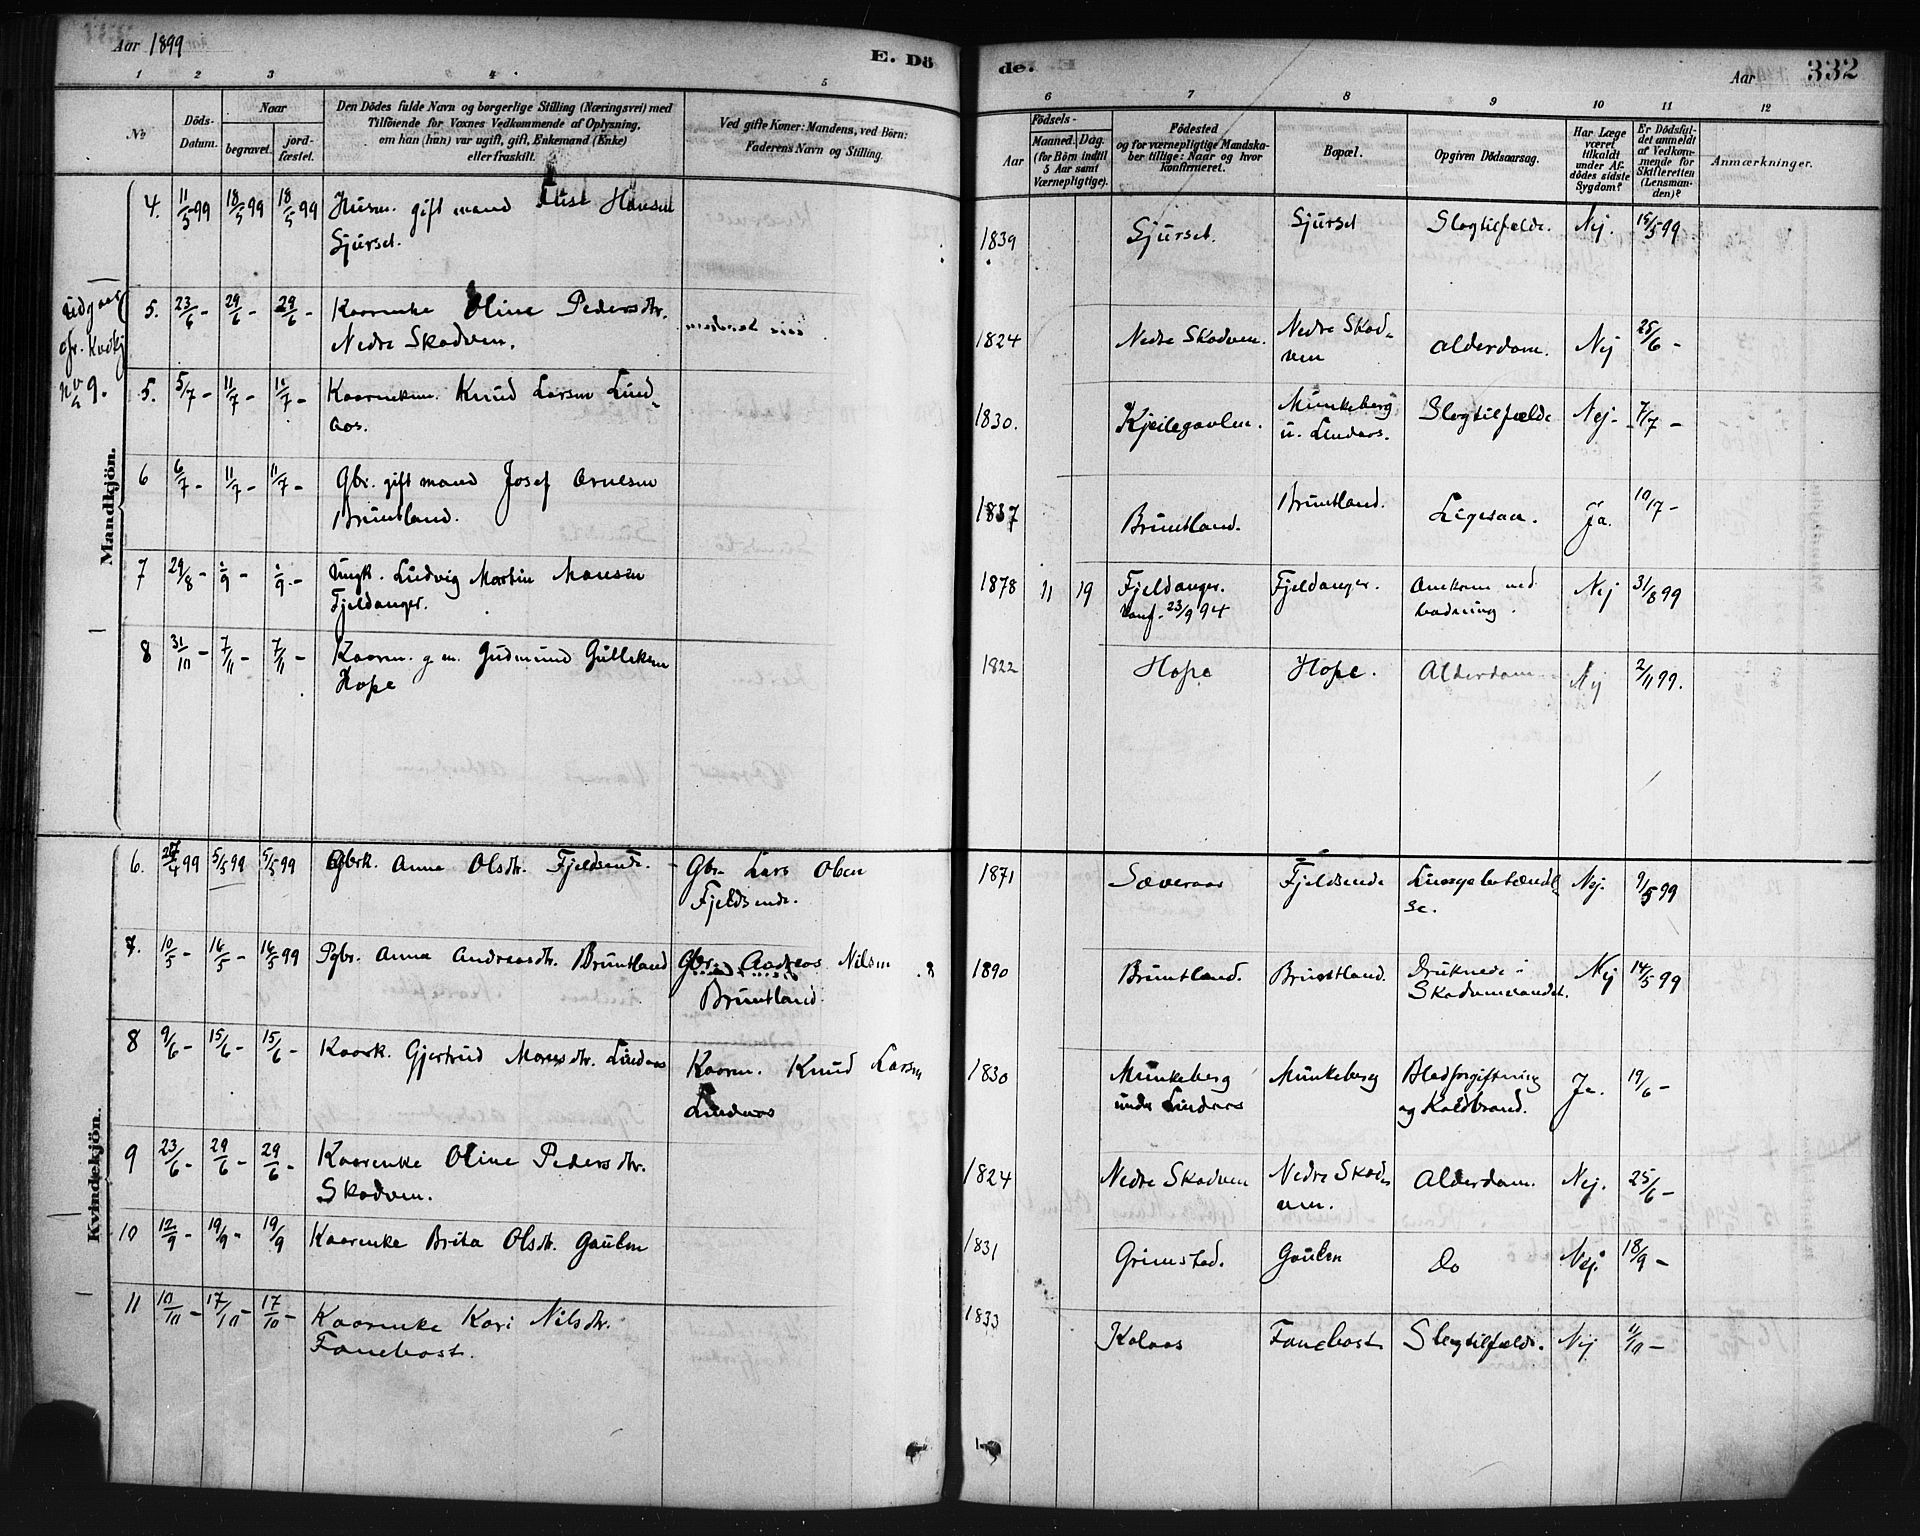 Aar 1899
E. Dö
de.
Aar
332
1 2 3 4 5
6 7 8 9 10 11 12
No
Döds-
Datum.
Naar
begravet.
jord-
fæstet.
Den Dödes fulde Navn og borgerlige Stilling (Næringsvei) med
Tilföiende for Voxnes Vedkommende af Oplysning,
om han (hun) var ugift, gift, Enkemand (Enke)
eller fraskilt.
Ved gifte Koner: Mandens, ved Börn:
Faderens Navn og Stilling.
Födsels-
Aar
Maaned.
Dag.
(for Börn indtil
5 Aar samt
Værnepligtige).
Födested
og for værnepligtige Mandska-
ber tillige: Naar og hvor
konfirmeret.
Bopæl.
Opgiven Dödsaarsag.
Har Læge
været
tilkaldt
under Af-
dödes sidste
Sygdom?
Er Dödsfal-
det anmeldt
af Vedkom-
mende for
Skifteretten
(Lensman-
den)?
Anmærkninger.
Mandkjön.
4. 11/5 99 18/5 99 18/5 99 Husm. gift mand Hansen
Sjurset.
1839 Sjurset. Sjurset Slagtilfælde. Nej. 15/5 99
udgaar
cfr. Kvkj
No 9.
5. 23/6 - 29/6 - 29/6 - Kaarenke Oline Pedersdtr.
Nedre Skodven.
1824 Nedre Skodven. Nedre Skod-
ven
Alderdom. Nej 25/6 -
5. 5/7 - 11/7 - 11/7 - Kaarenkem. Knud Larsen Lind-
aas.
1830. Kjeilegavlen. Munkeberg
u. Lindaas.
Slagtilfælde Nej - 7/7 -
6 6/7 - 11/7 - 11/7 - Gbr. gift mand Josef Arnesen
Bruntland.
1837 Bruntland. Bruntland. Ligesaa. Ja. 10/7 -
7 29/8 - 1/9 - 1/9 - Ungk. Ludvig Martin Monsen
Fjeldanger.
1878 11 19 Fjeldanger.
Konf. 23/9 94
Fjeldanger. Omkom ved
badning. Nej 31/8 99
8 31/10 - 7/11 - 7/11 - Kaarm. g. m. Gudmund Gulleksen
Hope
1822 Hope Hope. Alderdom Nej 2/11 99.
Kvindekjön.
6. 27/4 99 5/5 99 5/5 99 Gbrk. Anna Olsdtr. Fjeldsende. - Gbr. Lars Olsen
Fjeldsende.
1871 Sæveraas Fjeldsende Lungebetændel-
se. Nej. 9/5 99
7. 10/5 - 16/5 - 16/5 99 Pgbr. Anna Andreasdtr. Bruntland Gbr. Andreas Nilsen
Bruntland.
1890 Bruntland. Bruntland. Druknede i
Skodvenvandet. Nej 14/5 99
8 9/6 - 15/6 - 15/6 - Kaark. Gjertrud Monsdtr. Lindaas Kaarm. Knud Larsen
Lindaas
1830 Munkeberg
under Lindaas
Munkeberg Blodforgiftning
og Koldbrand. Ja. 19/6 -
9 23/6 - 29/6 - 29/6 - Kaarenke Oline Pedersdtr.
Skodven.
1824 Nedre Skodven Nedre Skod-
ven.
Alderdom. Nej. 25/6 -
10 12/9 - 19/9 - 19/9 Kaarenke Brita Olsdtr. Gaulen
1831 Grimstad. Gaulen Do Nej. 18/9 -
11 10/10 - 17/10 - 17/10 - Kaarenke Kari Nilsdtr.
Fanebost.
1833 Kolaas Fanebost Slagtilfælde. Nej 11/10 -